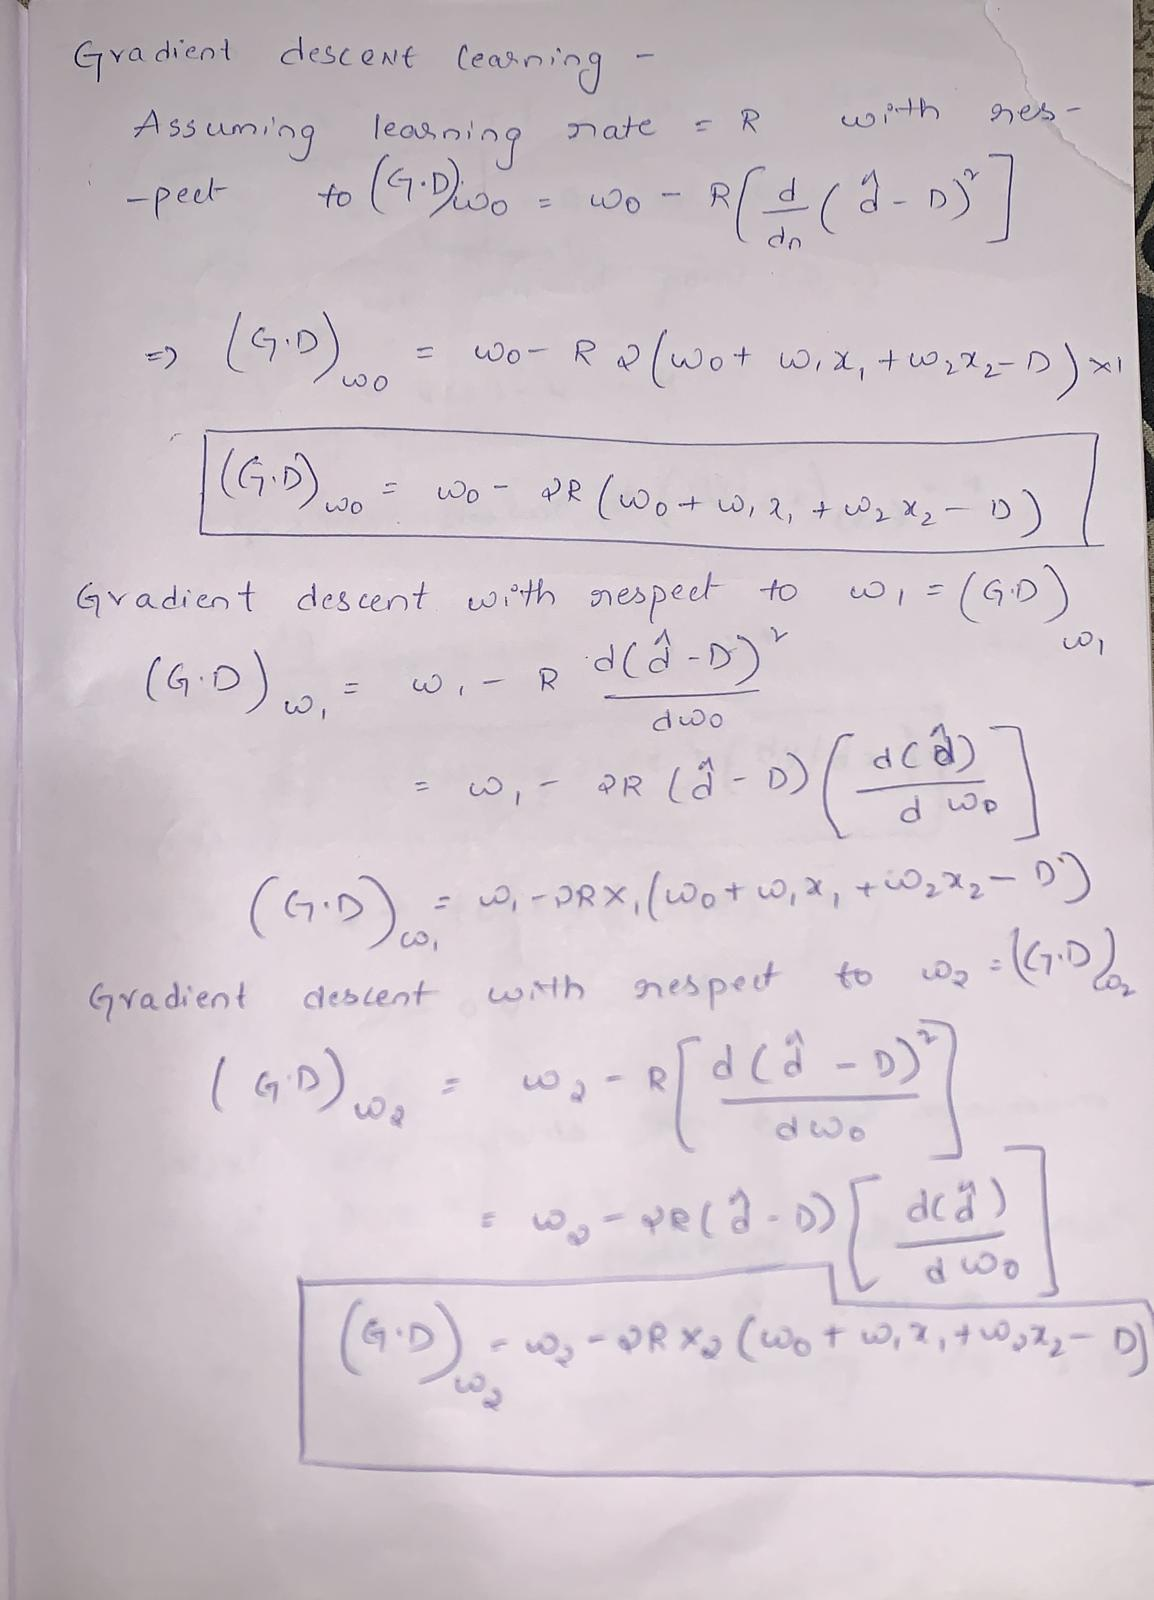 Gradient descent learning -
Assuming learning rate = R with res-
-pect to (G.D)w0 = w0 - R[d/dn (d̂ - D)²]
=> (G.D)w0 = w0 - R 2(w0 + w1x1 + w2x2 - D) x1
(G.D)w0 = w0 - 2R (w0 + w1x1 + w2x2 - D)
Gradient descent with respect to w1 = (G.D)w1
(G.D)w1 = w1 - R d(d̂ - D)²/dw0
= w1 - 2R (d̂ - D) [d(d̂)/dw0]
(G.D)w1 = w1 - 2Rx1(w0 + w1x1 + w2x2 - D)
Gradient descent with respect to w2 = (G.D)w2
(G.D)w2 = w2 - R[d(d̂ - D)²/dw0]
= w2 - 2R(d̂ - D)[d(d̂)/dw0]
(G.D)w2 = w2 - 2Rx2 (w0 + w1x1 + w2x2 - D)